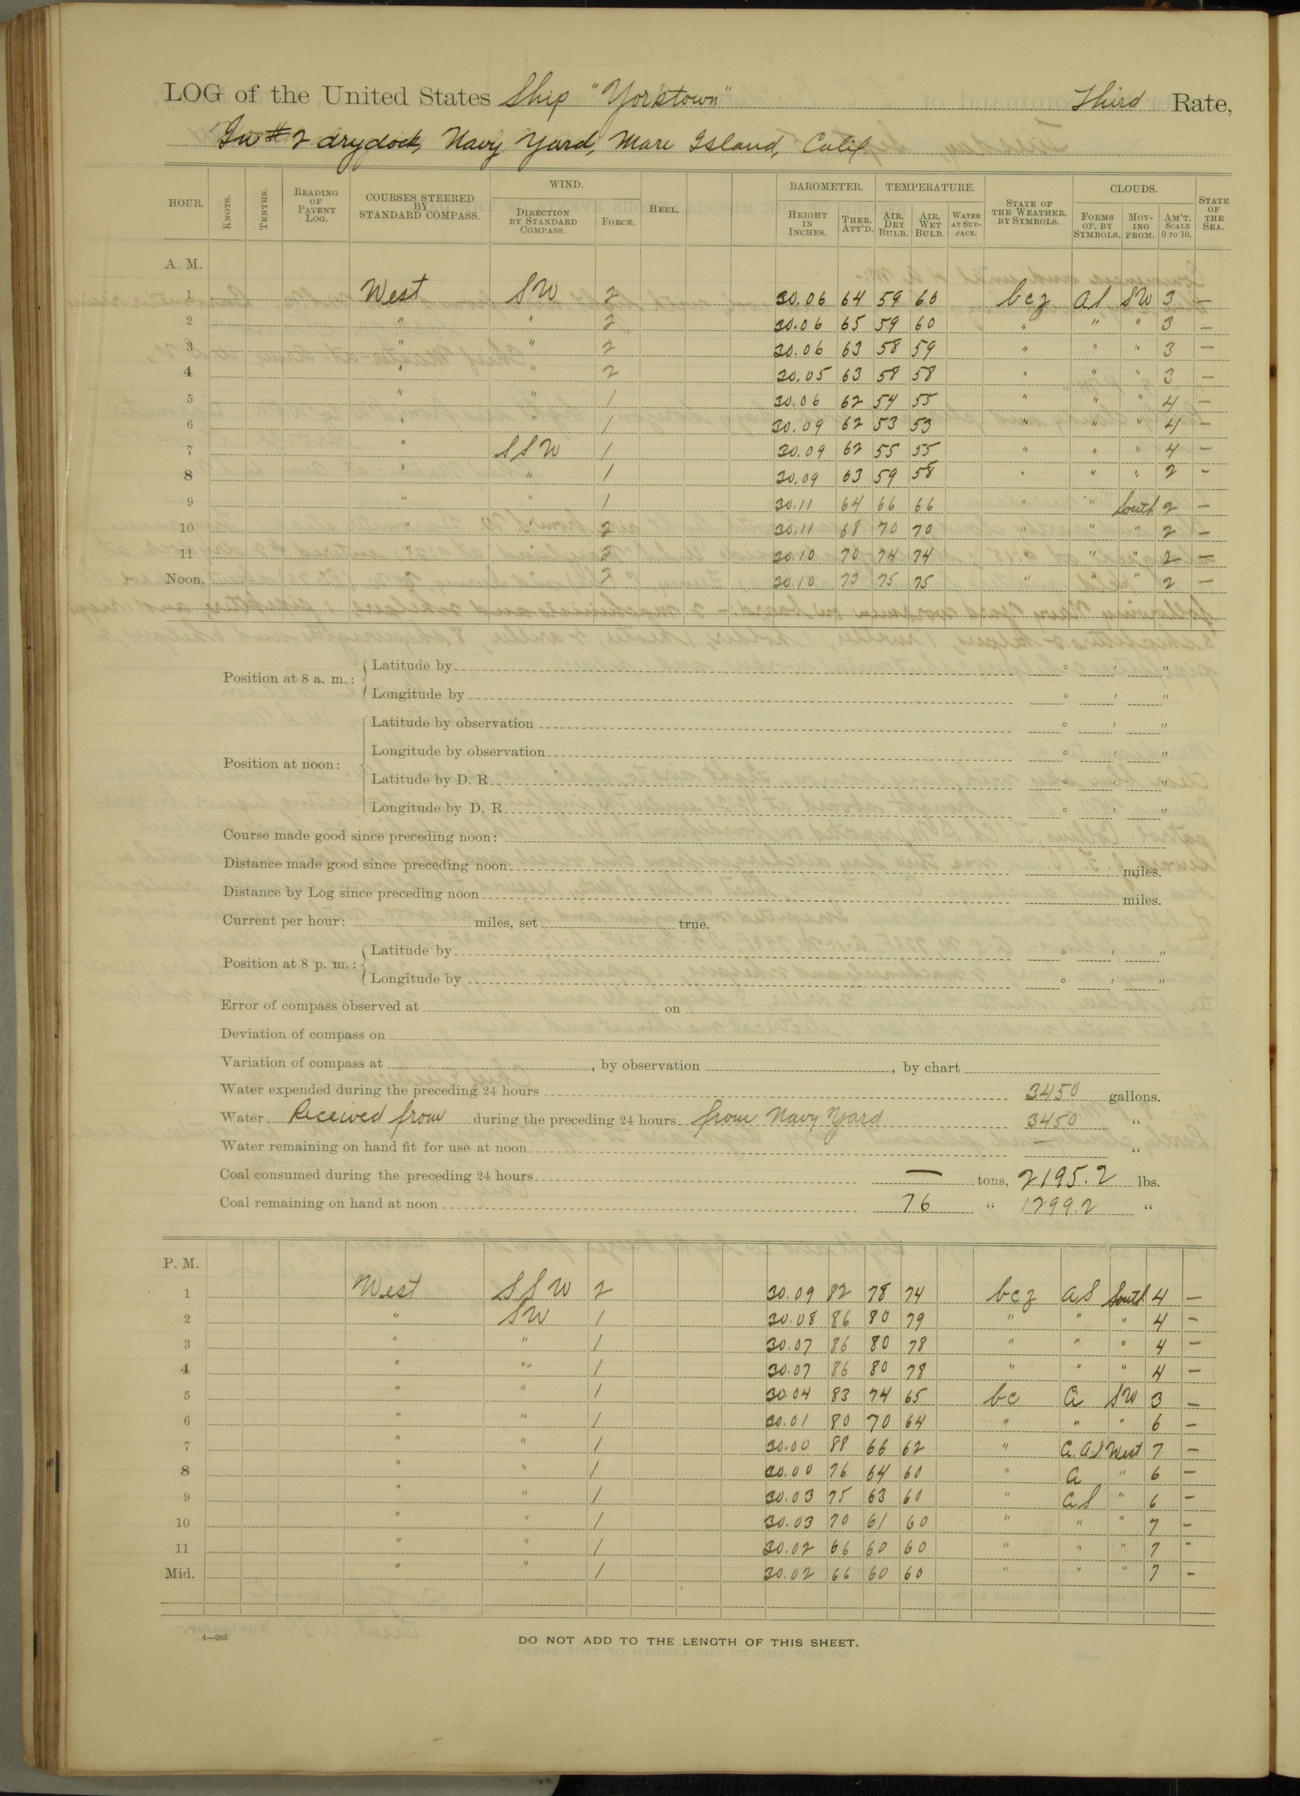 LOG of the United States Ship "Yorktown" Third Rate,
In #2 drydock, Navy Yard, Mare Island, Calif
HOUR. KNOTS. TENTHS. READING OF PATENT LOG. COURSES STEERED BY STANDARD COMPASS. WIND. DIRECTION BY STANDARD COMPASS. FORCE. HEEL. BAROMETER. HEIGHT IN INCHES. THER. ATT'D. TEMPERATURE. AIR, DRY BULB. AIR, WET BULB. WATER AT SUR-FACE. STATE OF THE WEATHER, BY SYMBOLS. CLOUDS. FORMS OF, BY SYMBOLS. MOV-ING FROM. AM'T. SCALE 0 TO 10. STATE OF THE SEA.
A. M.
1 West SW 2 30.06 64 59 60 bcz AS SW 3 —
2 " " 2 30.06 65 59 60 " " " 3 —
3 " " 2 30.06 63 58 59 " " " 3 —
4 " " 2 30.05 63 58 58 " " " 3 —
5 " " 1 30.06 62 54 55 " " " 4 —
6 " " 1 30.09 62 53 53 " " " 4 —
7 " SSW 1 30.09 62 55 55 " " " 4 —
8 " " 1 30.09 63 59 58 " " " 2 —
9 " " 1 30.11 64 66 66 " " South 2 —
10 " " 2 30.11 68 70 70 " " " 2 —
11 " " 2 30.10 70 74 74 " " " 2 —
Noon. " " 2 30.10 73 75 75 " " " 2 —
Position at 8 a. m.: Latitude by ° ' "
Longitude by ° ' "
Position at noon: Latitude by observation ° ' "
Longitude by observation ° ' "
Latitude by D. R. ° ' "
Longitude by D. R. ° ' "
Course made good since preceding noon:
Distance made good since preceding noon miles.
Distance by Log since preceding noon miles.
Current per hour: miles, set true.
Position at 8 p. m.: Latitude by ° ' "
Longitude by ° ' "
Error of compass observed at on
Deviation of compass on
Variation of compass at , by observation , by chart
Water expended during the preceding 24 hours 3450 gallons.
Water Received from during the preceding 24 hours from Navy Yard 3450 "
Water remaining on hand fit for use at noon — "
Coal consumed during the preceding 24 hours — tons, 2195.2 lbs.
Coal remaining on hand at noon 76 " 1299.2 "
P. M.
1 West SSW 2 30.09 82 78 74 bcz AS South 4 —
2 " SW 1 30.08 86 80 79 " " " 4 —
3 " " 1 30.07 86 80 78 " " " 4 —
4 " " 1 30.07 86 80 78 " " " 4 —
5 " " 1 30.04 83 74 65 bc C SW 3 —
6 " " 1 30.01 80 70 64 " " " 6 —
7 " " 1 30.00 88 66 62 " C. AS. West 7 —
8 " " 1 30.00 76 64 60 " C " 6 —
9 " " 1 30.03 75 63 60 " CS " 6 —
10 " " 1 30.03 70 61 60 " " " 7 —
11 " " 1 30.02 66 60 60 " " " 7 —
Mid. " " 1 30.02 66 60 60 " " " 7 —
4—265
DO NOT ADD TO THE LENGTH OF THIS SHEET.